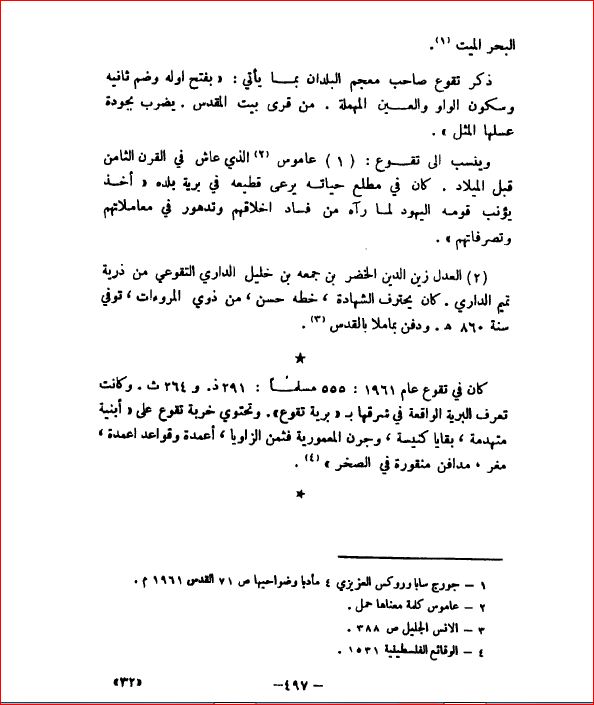 البحر الميت (١).
ذكر تقوع صاحب معجم البلدان بما يأتي : « بفتح اوله وضم ثانيه
وسكون الواو والعين المهملة . من قرى بيت المقدس . يضرب بجودة
عسلها المثل » .
وينسب الى تقوع : (١) عاموس (٢) الذي عاش في القرن الثامن
قبل الميلاد . كان في مطلع حياته يرعى قطيعه في برية بلده « أخذ
يؤنب قومه اليهود لما رآه من فساد اخلاقهم وتدهور في معاملاتهم
وتصرفاتهم » .
(٢) العدل زين الدين الخضر بن جمعه بن خليل الداري التقوعي من ذرية
تميم الداري . كان يحترف الشهادة ، خطه حسن ، من ذوي المروءات ، توفي
سنة ٨٦٠ ه . ودفن بماملا بالقدس (٣) .
★
كان في تقوع عام ١٩٦١ : ٥٥٥ مسلماً : ٢٩١ ذ. و ٢٦٤ ث . وكانت
تعرف البرية الواقعة في شرقها بـ « برية تقوع» . وتحتوي خربة تقوع على « أبنية
متهدمة ، بقايا كنيسة ، وجرن المعمورية فثمن الزاويا ، أعمدة وقواعد اعمدة ،
مغر ، مدافن منقورة في الصخر » (٤) .
★
١ – جورج سابا وروكس العزيزي ٤ مأدبا وضواحيها ص ٧١ القدس ١٩٦١ م .
٢ – عاموس كلمة معناها حمل .
٣ – الانس الجليل ص ٣٨٨ .
٤ – الوقائع الفلسطينية ١٥٣١ .
– ٤٩٧ –
«٣٢»